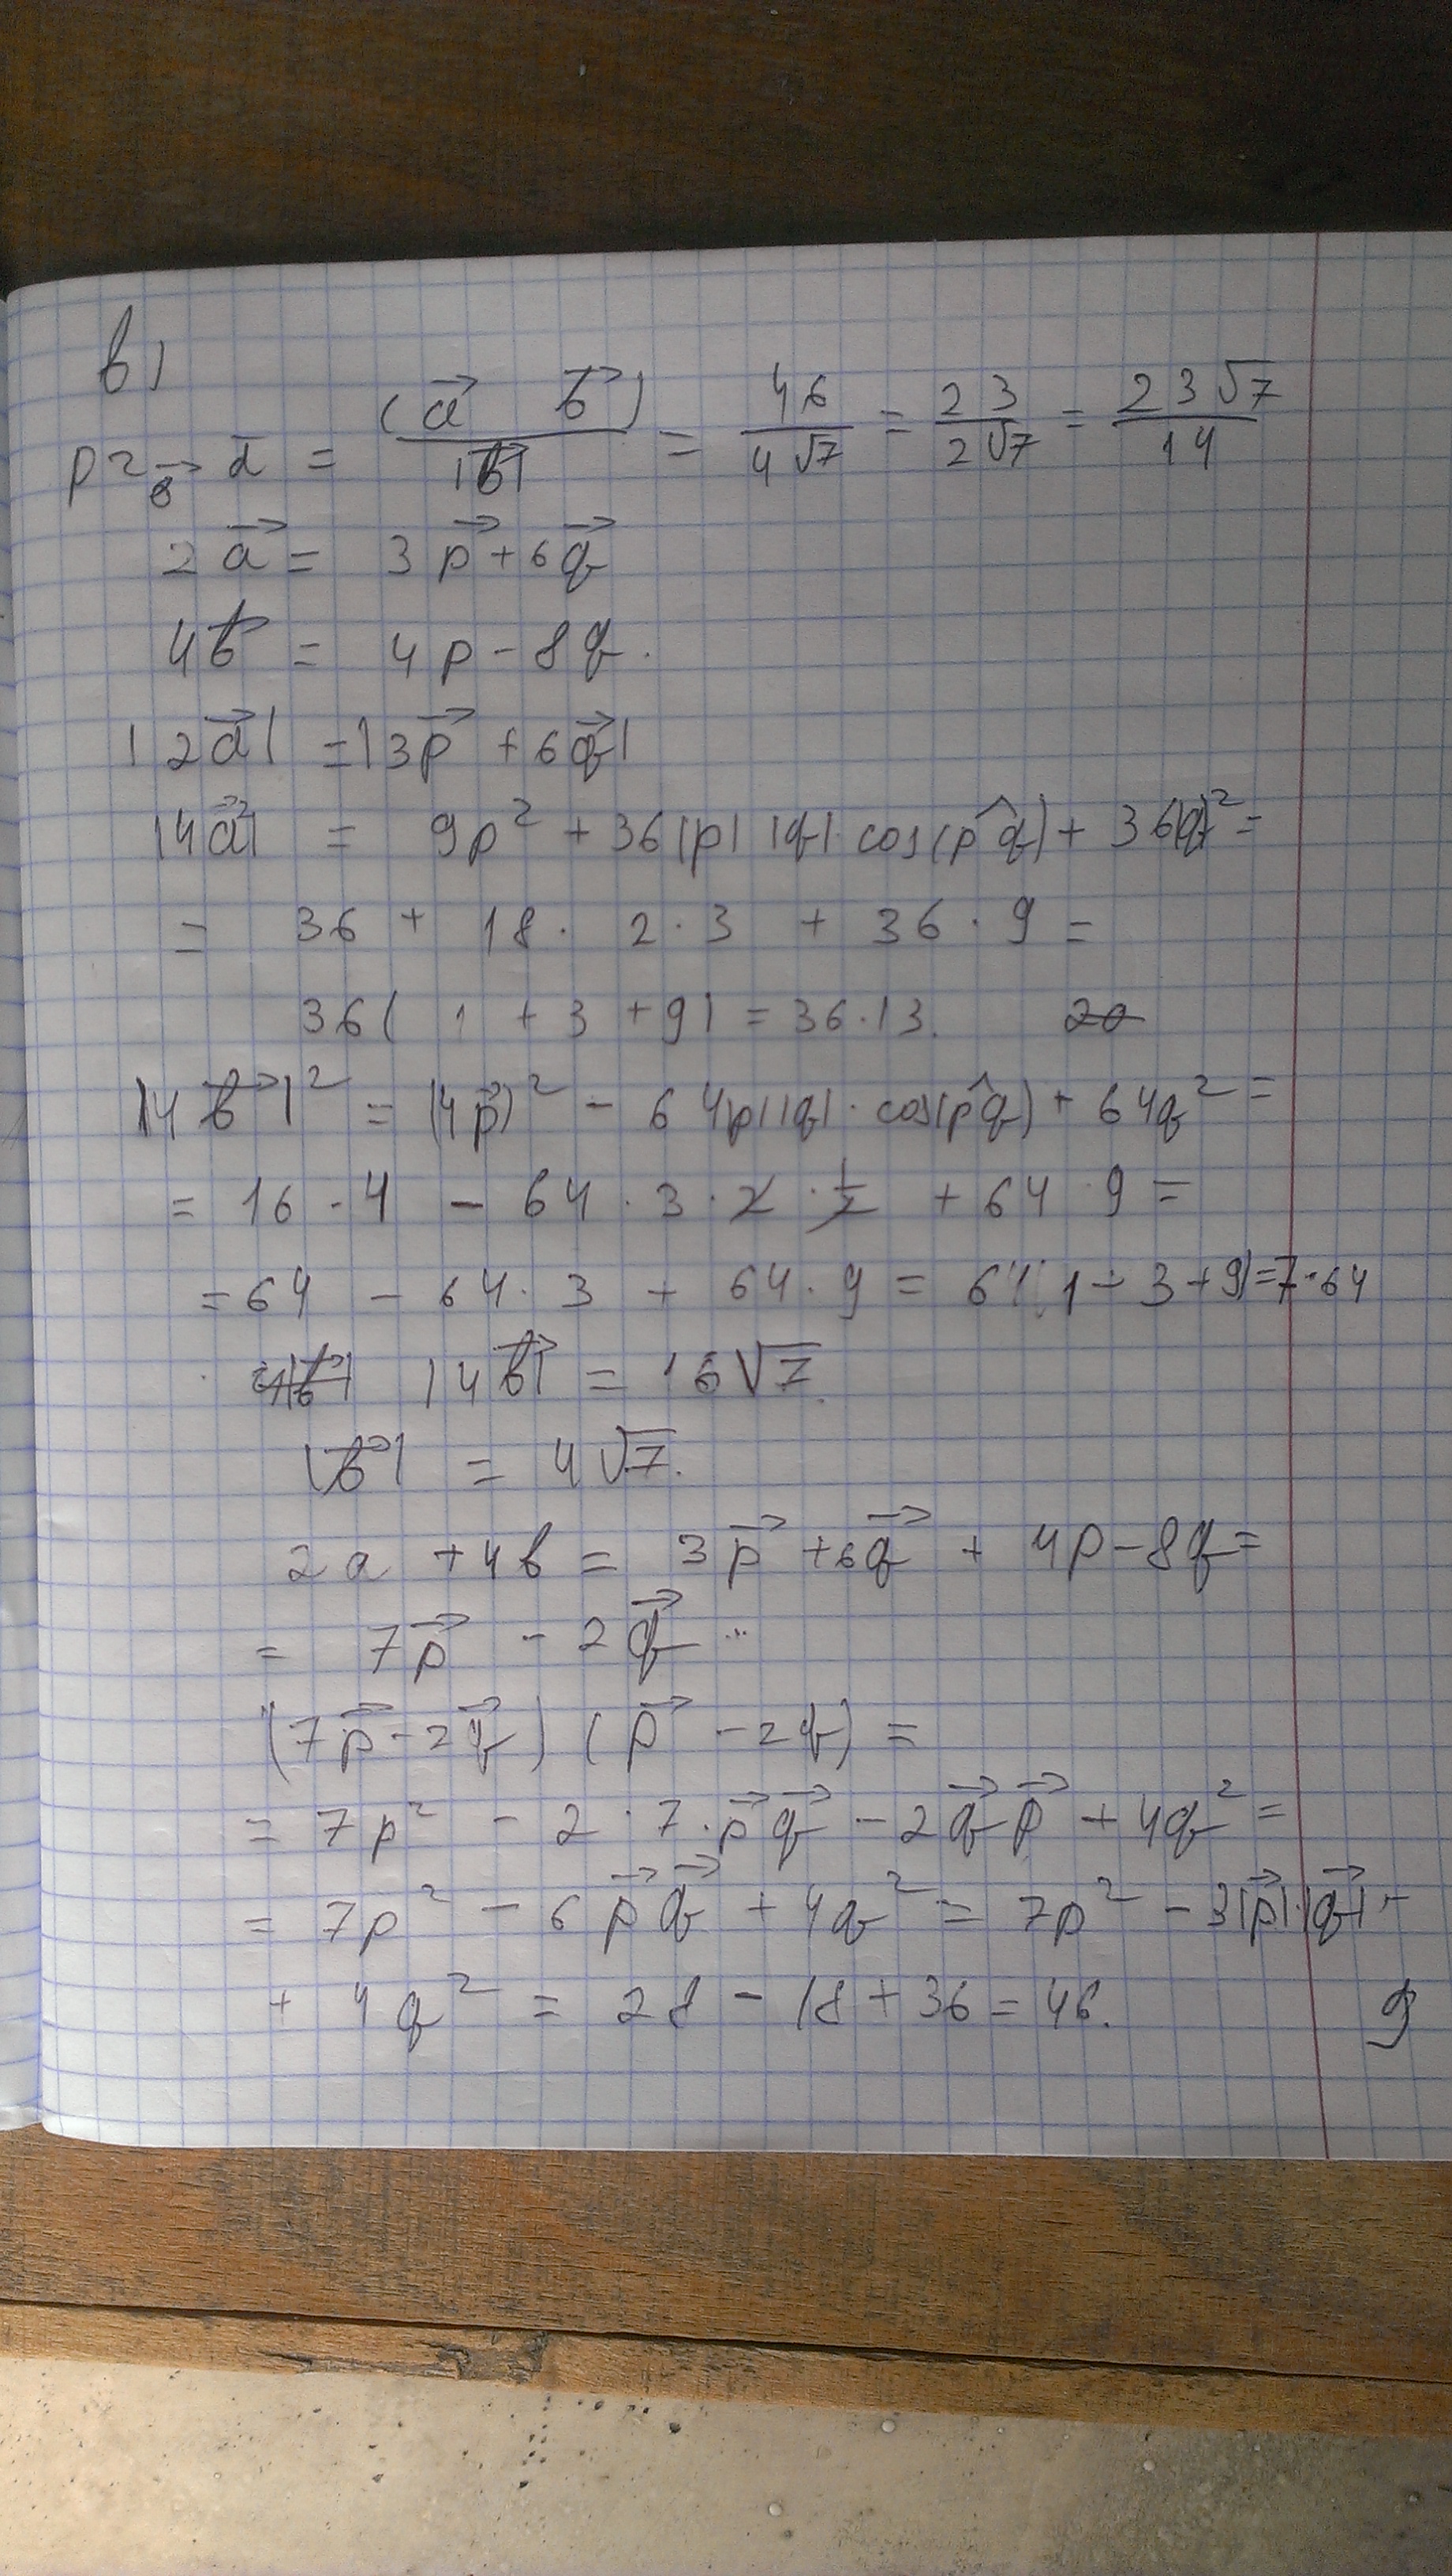 в)
пр_b⃗ a̅ = (a⃗ b⃗) / |b⃗| = 46 / 4√7 = 23 / 2√7 = 23√7 / 14
2a⃗ = 3p⃗ + 6q⃗
4b⃗ = 4p - 8q.
|2a⃗| = |3p⃗ + 6q⃗|
|4a⃗²| = 9p² + 36|p| |q| cos(p^q) + 36|q|² =
= 36 + 18 · 2 · 3 + 36 · 9 =
36( 1 + 3 + 9) = 36 · 13.
|4b⃗|² = (4p⃗)² - 64|p||q| · cos(p^q) + 64q² =
= 16 · 4 - 64 · 3 · 2 · 1/2 + 64 · 9 =
= 64 - 64 · 3 + 64 · 9 = 64(1 - 3 + 9) = 7 · 64
|4b⃗| = 16√7.
|b⃗| = 4√7.
2a + 4b = 3p⃗ + 6q⃗ + 4p - 8q =
= 7p⃗ - 2q⃗ ...
(7p⃗ - 2q⃗) (p⃗ - 2q) =
= 7p² - 2 · 7 · p⃗q⃗ - 2q⃗p⃗ + 4q² =
= 7p² - 6p⃗q⃗ + 4q² = 7p² - 3|p⃗| · |q⃗| +
+ 4q² = 28 - 18 + 36 = 46.